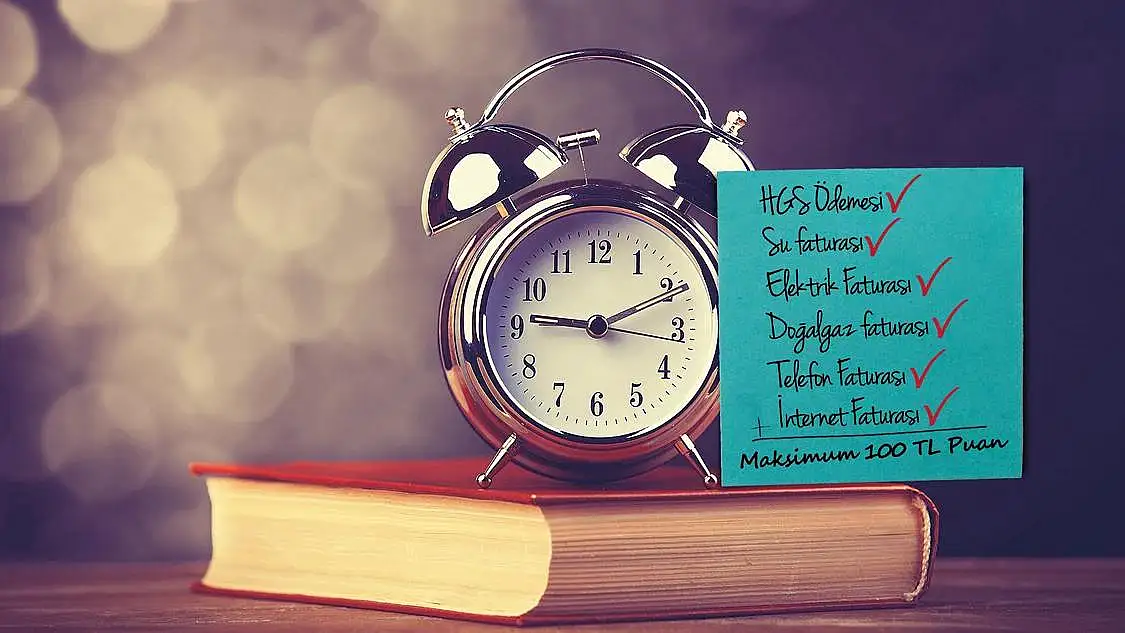 12
11 1
10 2
9 3
8 4
7 5
6
HGS Ödemesi
Su faturası
Elektrik Faturası
Doğalgaz faturası
Telefon Faturası
+ İnternet Faturası
Maksimum 100 TL Puan